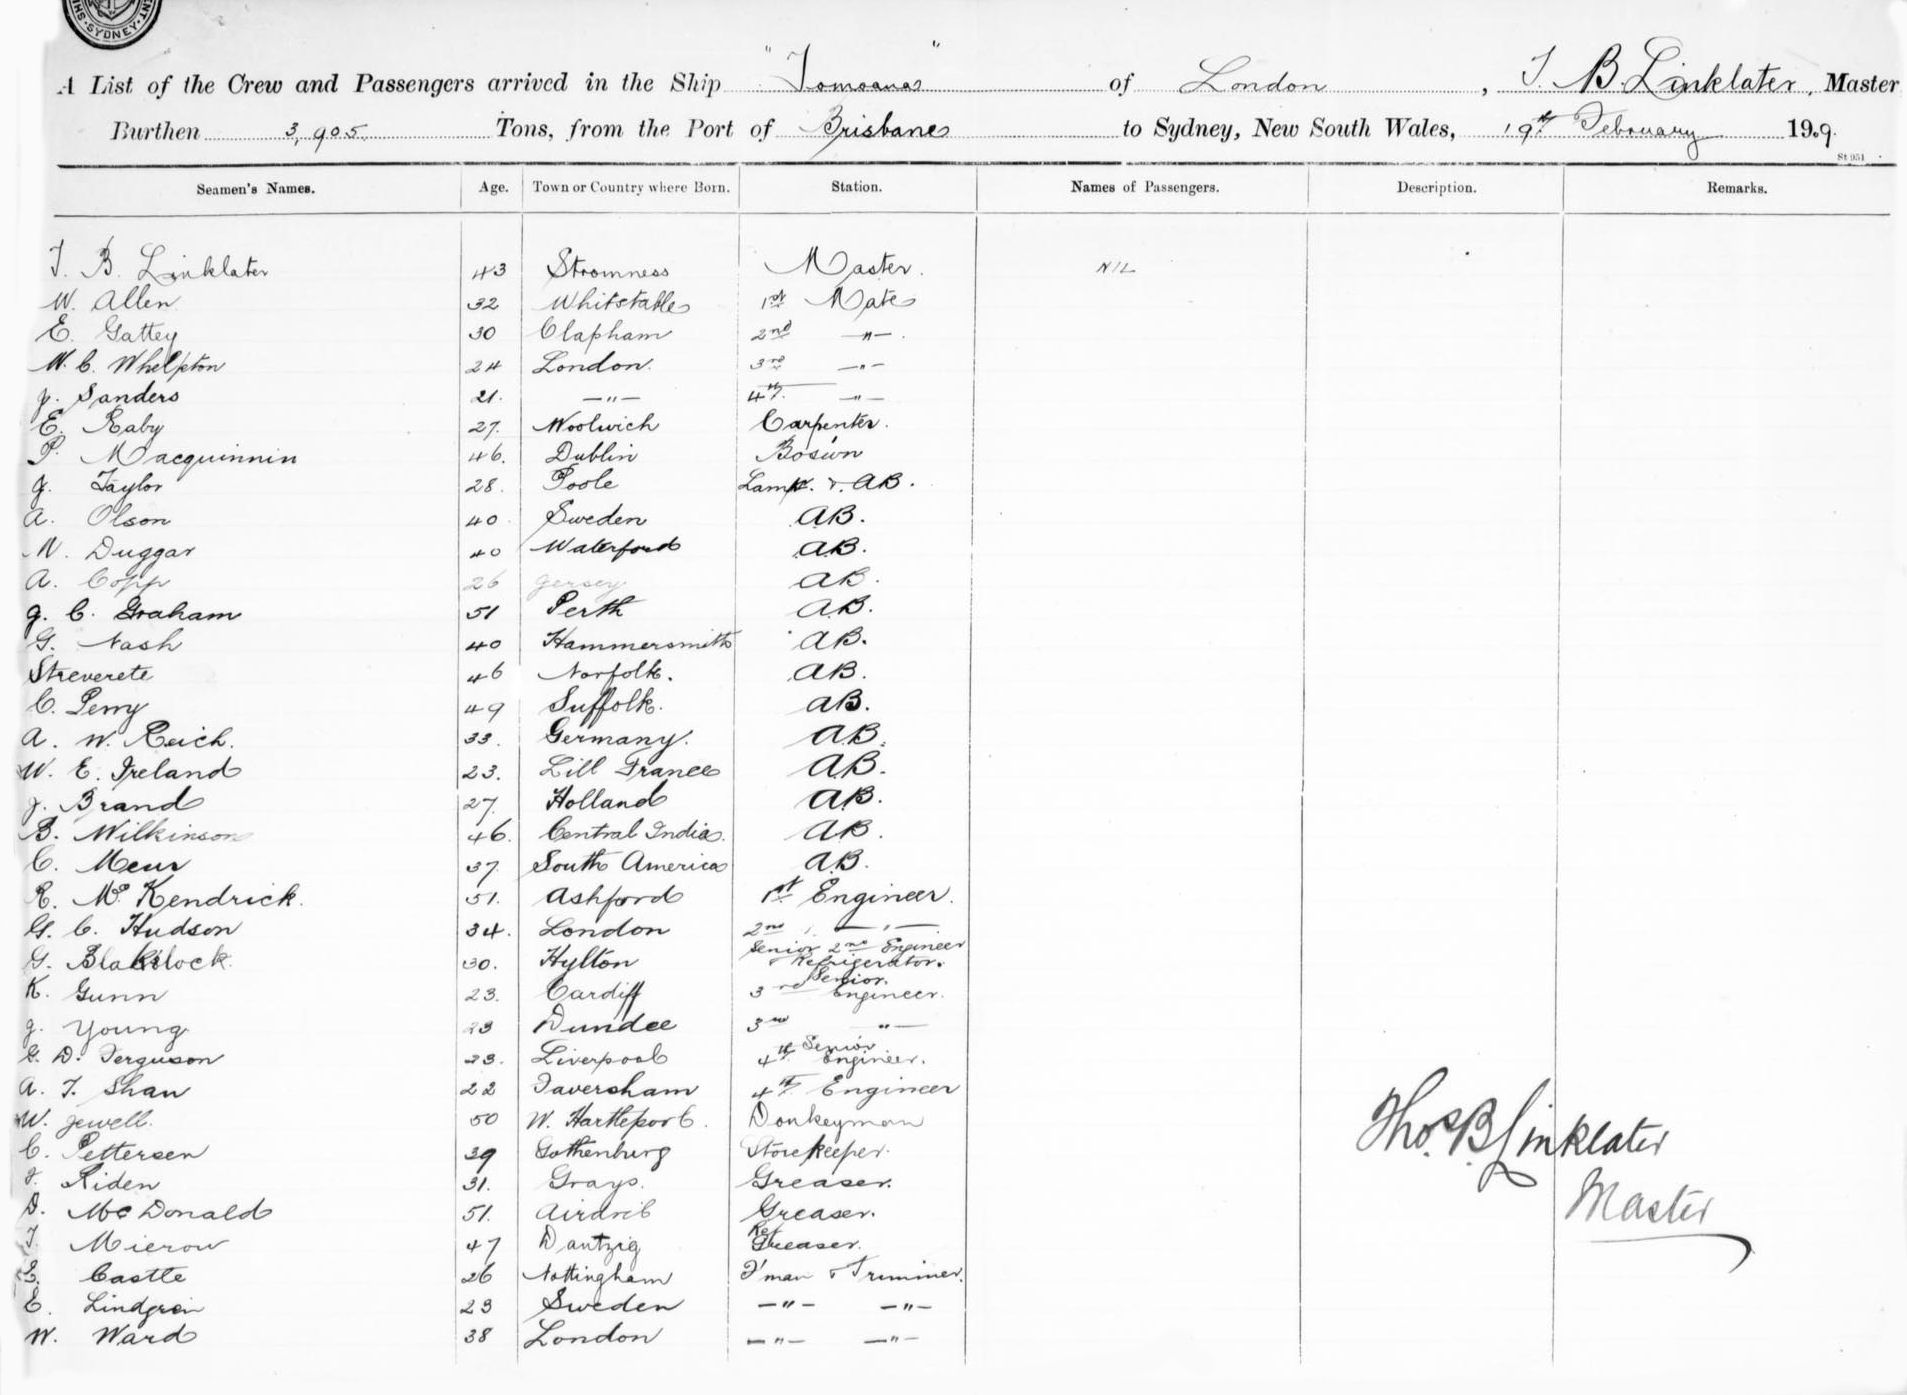 SYDNEY
A List of the Crew and Passengers arrived in the Ship "Tomoana" of London, T. B. Linklater, Master
Burthen 3,905 Tons, from the Port of Brisbane to Sydney, New South Wales, 19th February 1909.
St 951
Seamen's Names. Age. Town or Country where Born. Station. Names of Passengers. Description. Remarks.
T. B. Linklater 43 Stromness Master. NIL
W. Allen 32 Whitstable 1st Mate
E. Gattey 30 Clapham 2nd —"—.
W. C. Whelpton 24 London. 3rd —"—
J. Sanders 21. —"— 4th. —"—
E. Raby 27. Woolwich Carpenter.
P. Macquinnin 46. Dublin Bos'wn
J. Taylor 28. Poole Lamps. & AB.
A. Olson 40. Sweden AB.
N. Duggar 40 Waterford AB.
A. Copp 26 Jersey AB.
J. C. Graham 51 Perth AB.
G. Nash 40 Hammersmith AB.
Streverete 46 Norfolk. AB.
C. Perry 49 Suffolk. AB.
A. W. Reich. 33. Germany. AB.
W. E. Ireland 23. Lill France AB.
J. Brand 27. Holland AB.
B. Wilkinson 46. Central India. AB.
C. Meur 37. South America AB.
R. McKendrick. 51. Ashford 1st Engineer.
G. C. Hudson 34. London 2nd —"—
G. Blacklock. 30. Hylton Senior 2nd Engineer
& Refrigerator.
K. Gunn 23. Cardiff 3rd Senior Engineer.
J. Young 23 Dundee 3rd "—
G. D. Ferguson 23. Liverpool 4th Senior Engineer.
A. T. Shaw 22 Faversham 4th Engineer
W. Jewell. 50 W. Hartlepool. Donkeyman
C. Pettersen 39 Gothenburg Storekeeper.
J. Riden 31. Grays. Greaser.
D. McDonald 51. Airdrie Greaser.
T. Mierow 47 Dantzig Ref Greaser.
E. Castle 26 Nottingham F'man & Trimmer.
E. Lindgren 23 Sweden —"— —"—
W. Ward 38 London —"— —"—
Thos. B. Linklater
Master